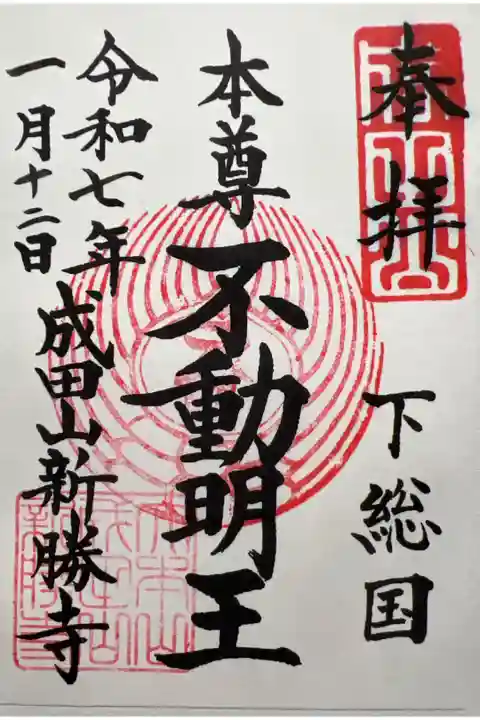 奉拝
下総国
本尊 不動明王
令和七年
一月十二日
成田山新勝寺